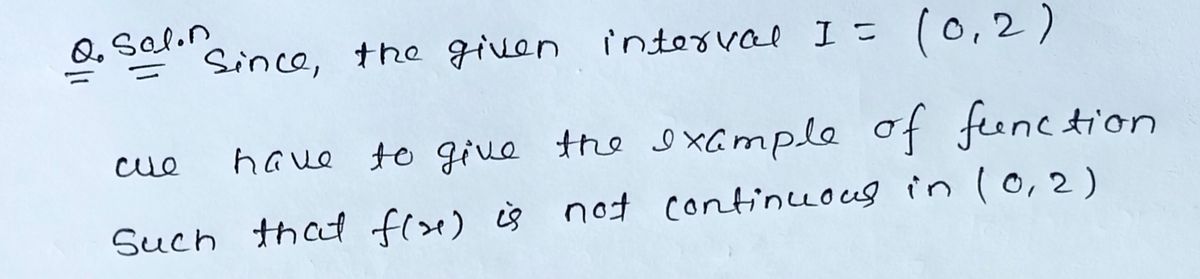 Q. Sol.n Since, the given interval I = (0,2)
we have to give the example of function
Such that f(x) is not continuous in (0,2)